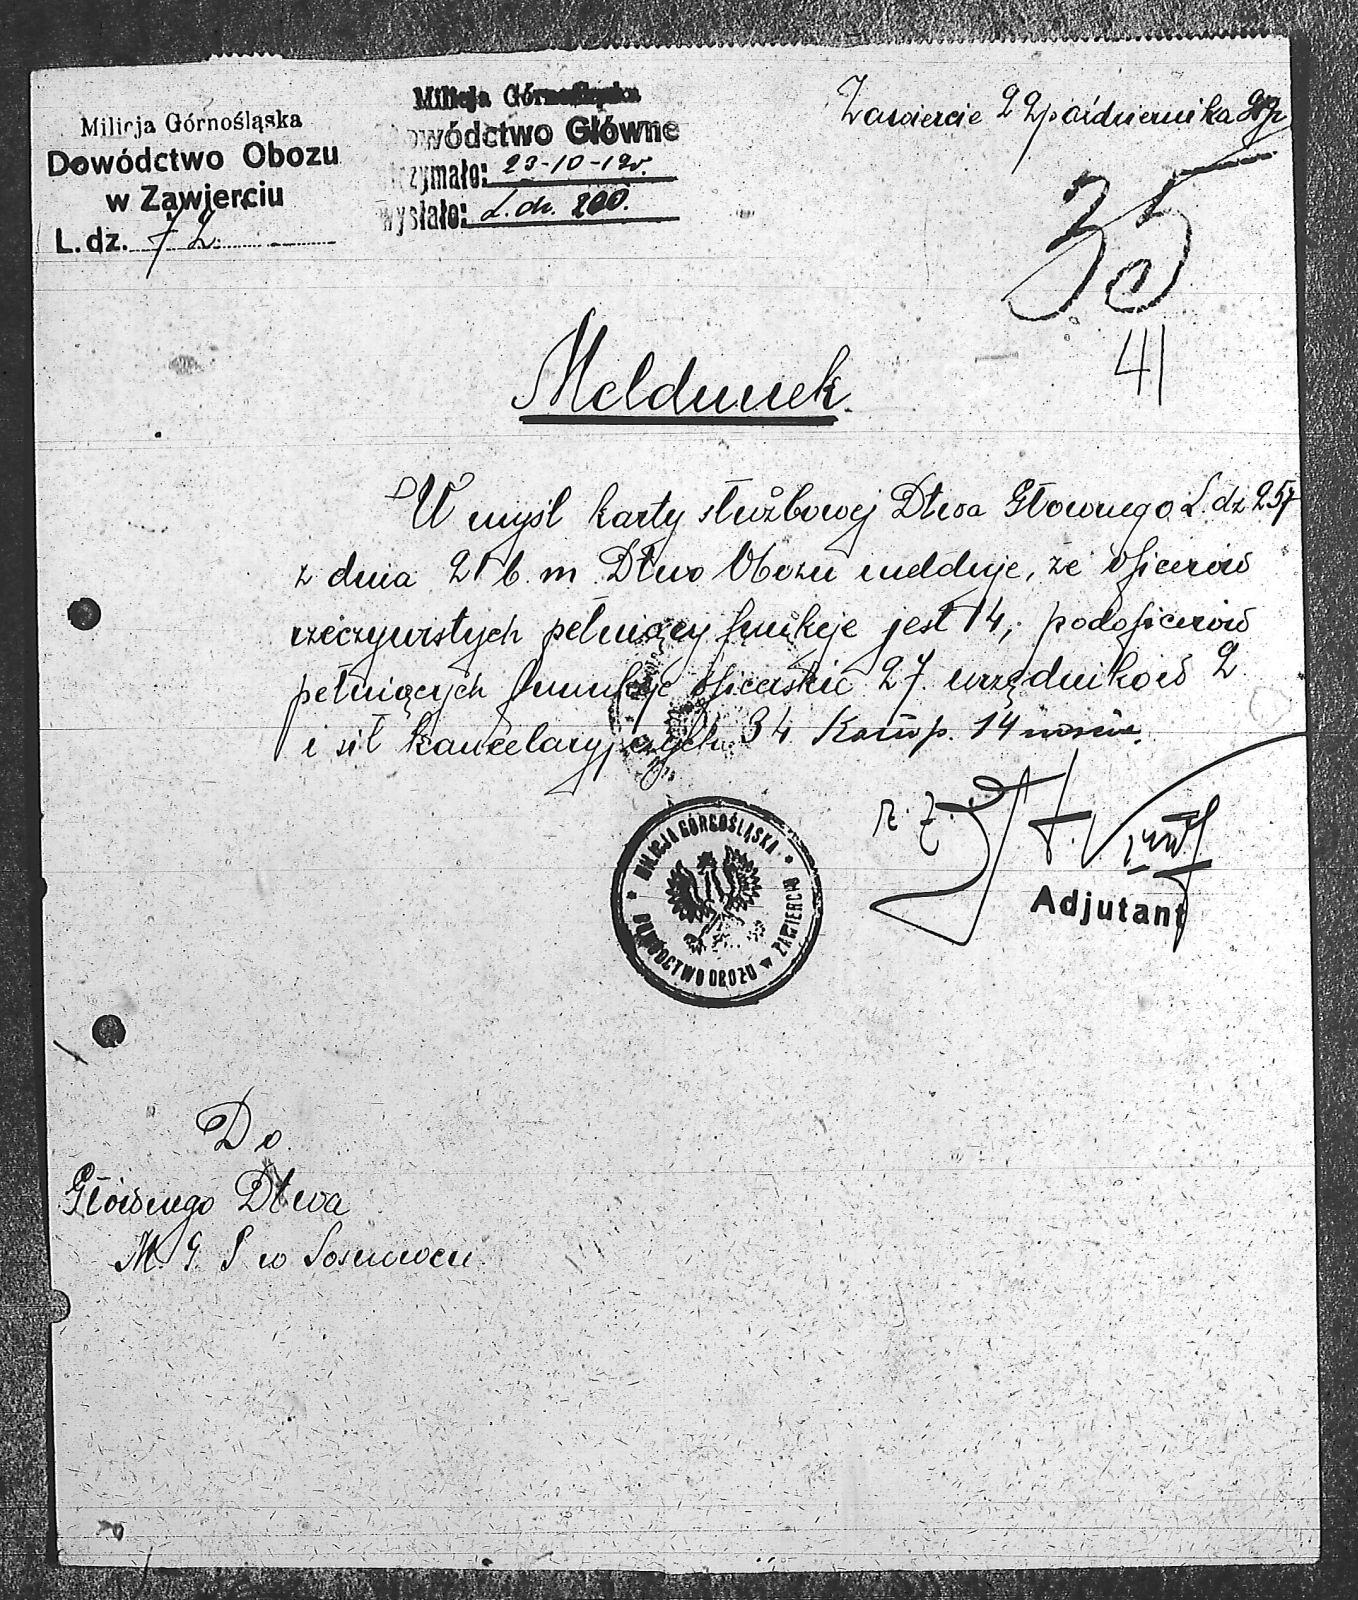 Milicja Górnośląska
Dowództwo Obozu
w Zawierciu
L. dz. 72
Milicja Górnośląska
Dowództwo Główne
otrzymało: 23-10-19r.
wysłało: L. dz. 200.
Zawiercie 22 października
35
41
Meldunek.
W myśl karty służbowej Dtwa Głownego L. dz 257
z dnia 21 b. m. Dtwo Obozu melduje, że oficerów
rzeczywistych pełniący funkcje jest 14, podoficerów
pełniących funkcje oficerskie 27. urzędników 2
i sił kancelaryjnych 34 Komp. 14
r. z.
Adjutant
MILICJA GÓRNOŚLĄSKA * DOWÓDZTWO OBOZU w ZAWIERCIU *
Do
Głównego Dtwa
M. G. S w Sosnowcu.